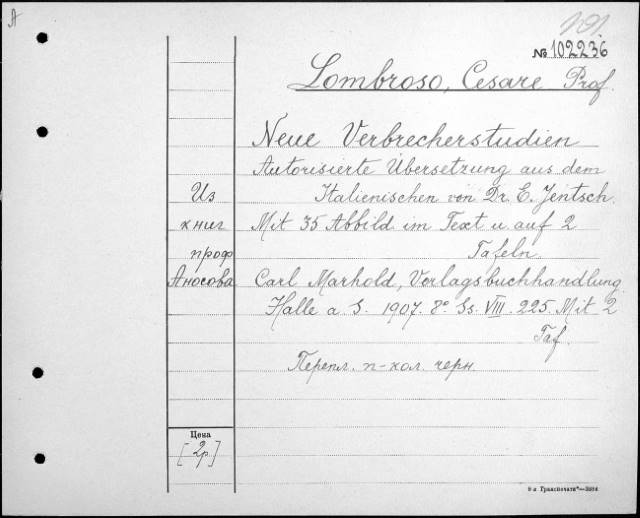 A
101.
№ 102236
Lombroso, Cesare Prof.
Neue Verbrecherstudien
Autorisierte Übersetzung aus dem
Italienischen von Dr. E. Jentsch.
Mit 35 Abbild. im Text u. auf 2
Tafeln.
Из
книг
проф
Аносова
Carl Marhold, Verlagsbuchhandlung.
Halle a. S. 1907. 8° Ss. VIII. 225. Mit 2
Taf.
Перепл. п-кол. черн.
Цена
[2р]